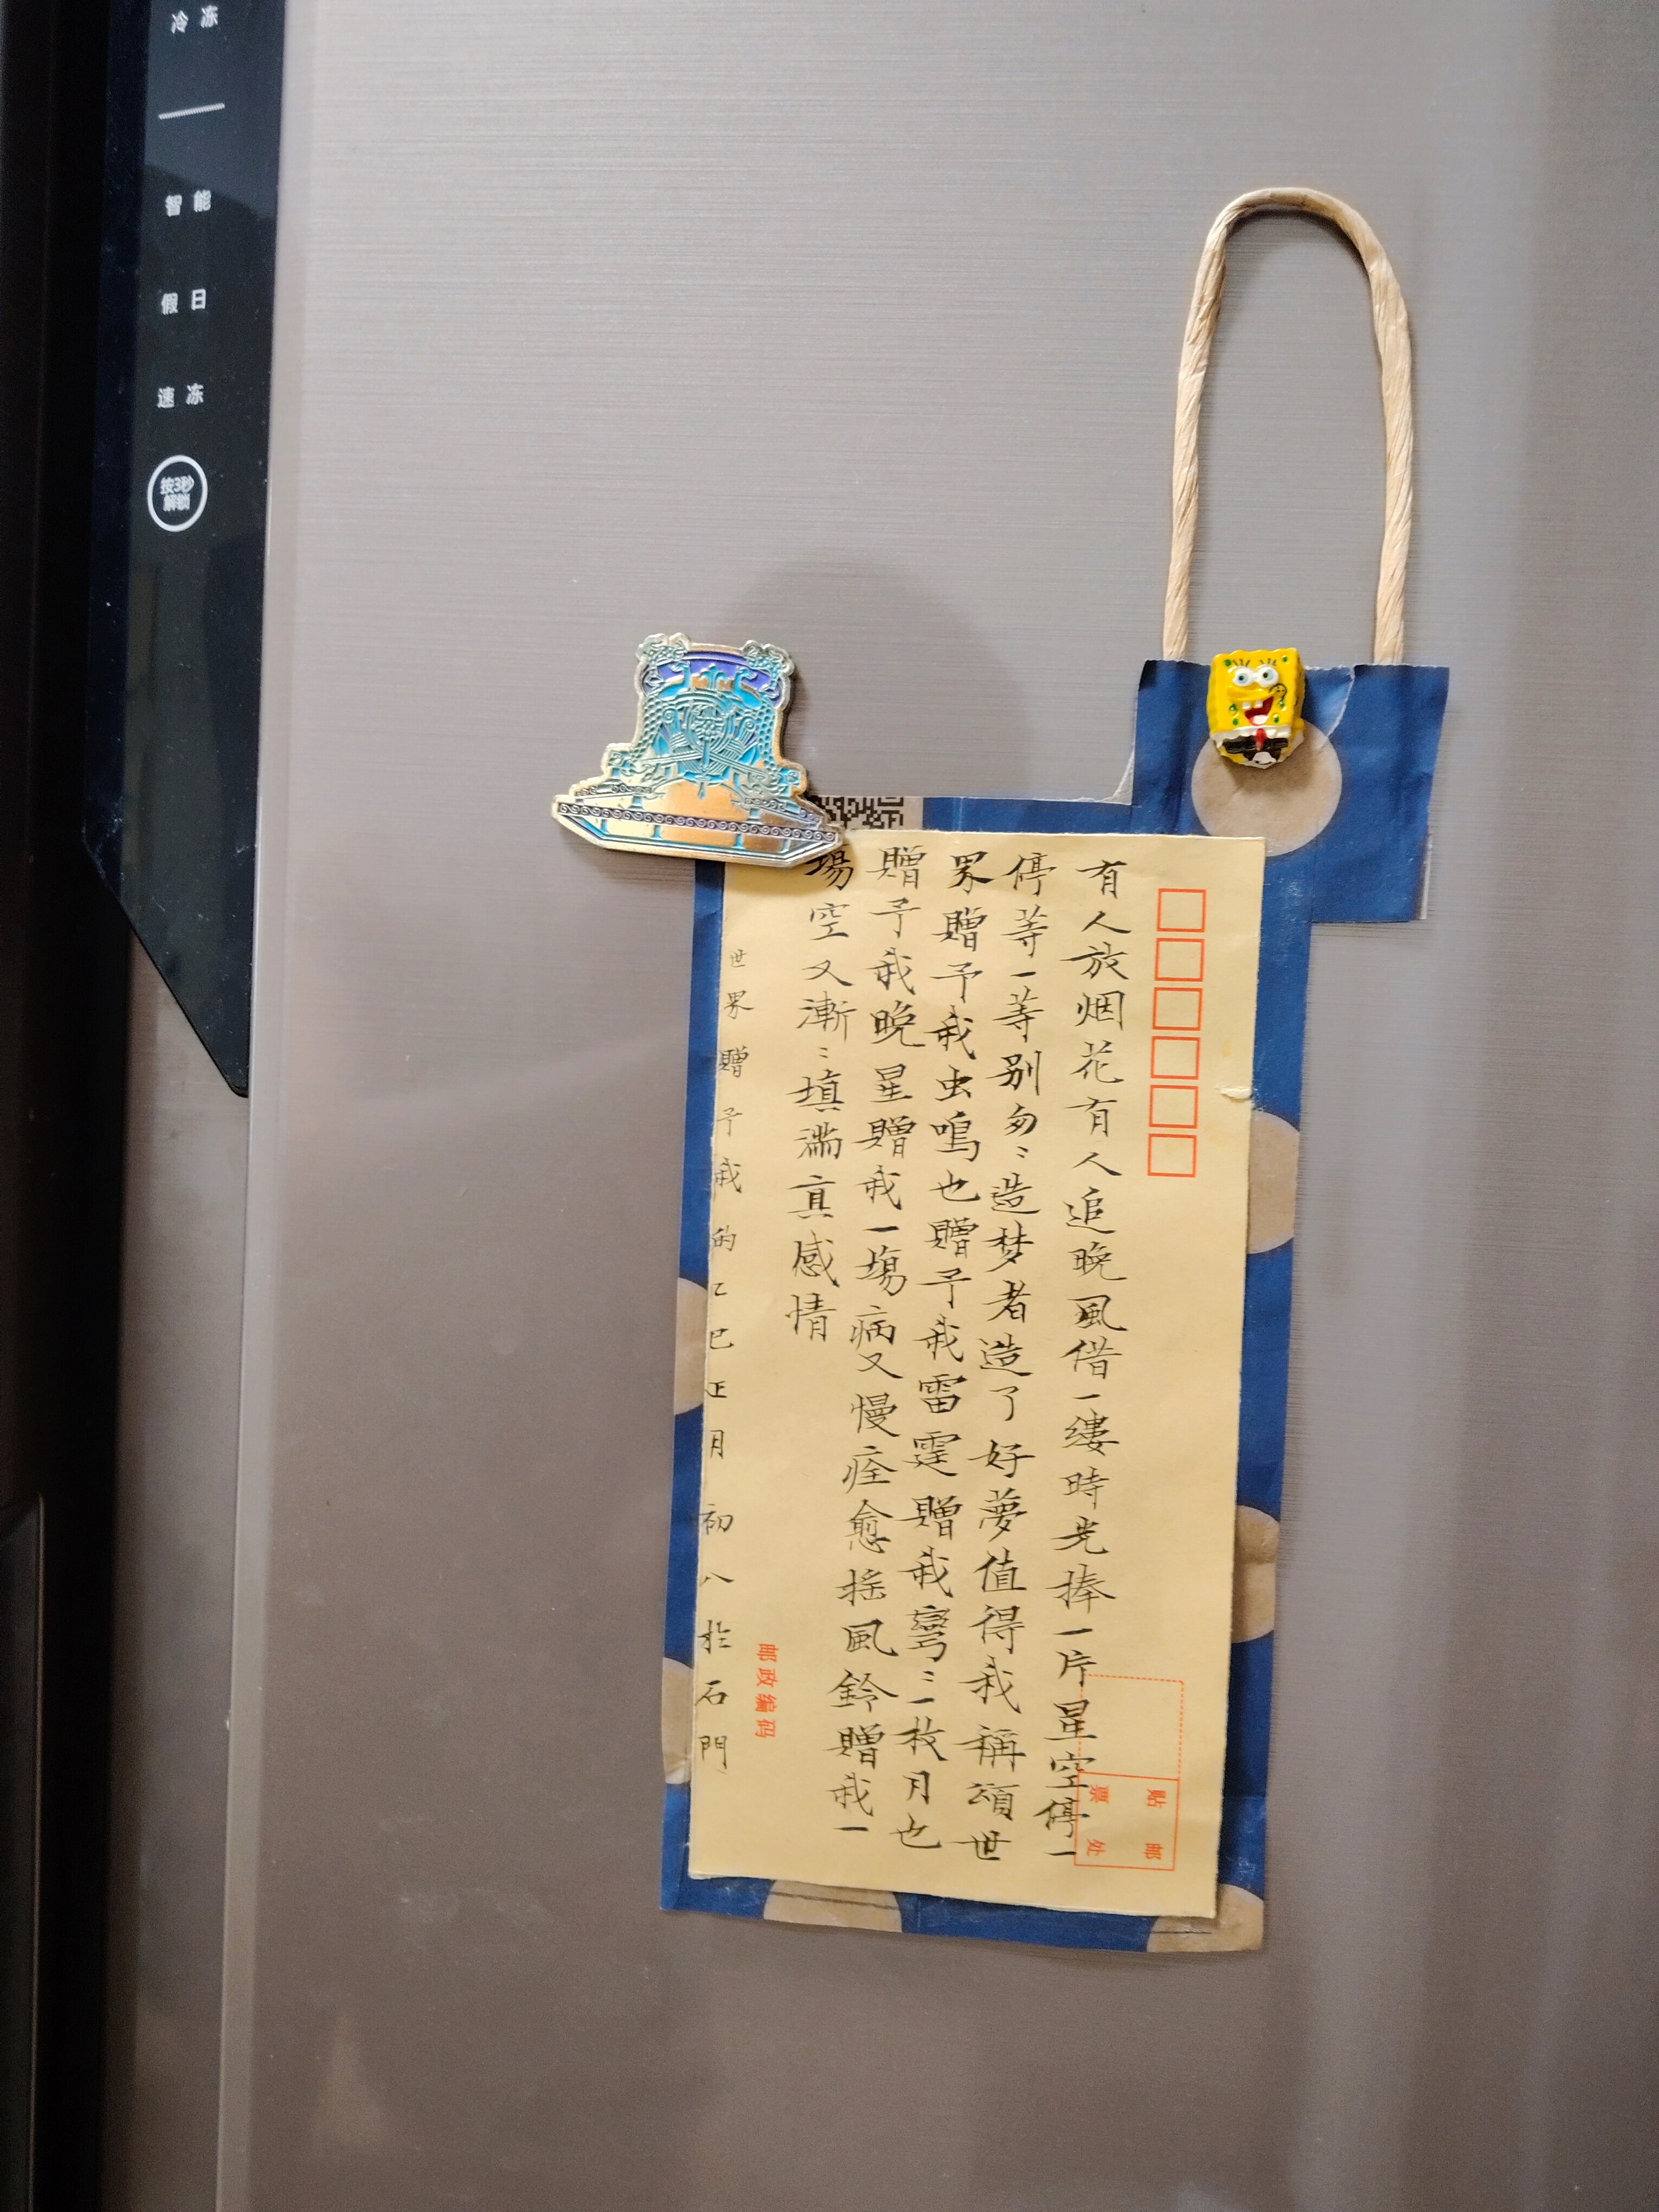 冷冻
智能
假日
速冻
按3秒
解锁
有人放烟花有人追晚風借一缕時光捧一片星空停一
停等一等别匆〻造梦者造了好夢值得我稱頌世
界贈予我虫鳴也贈予我雷霆贈我彎〻一枚月也
贈予我晚星贈我一場病又慢痊愈摇風鈴贈我一
場空又漸〻填滿真感情
世界贈予我的乙巳正月初八於石門
邮政编码
贴邮
票处